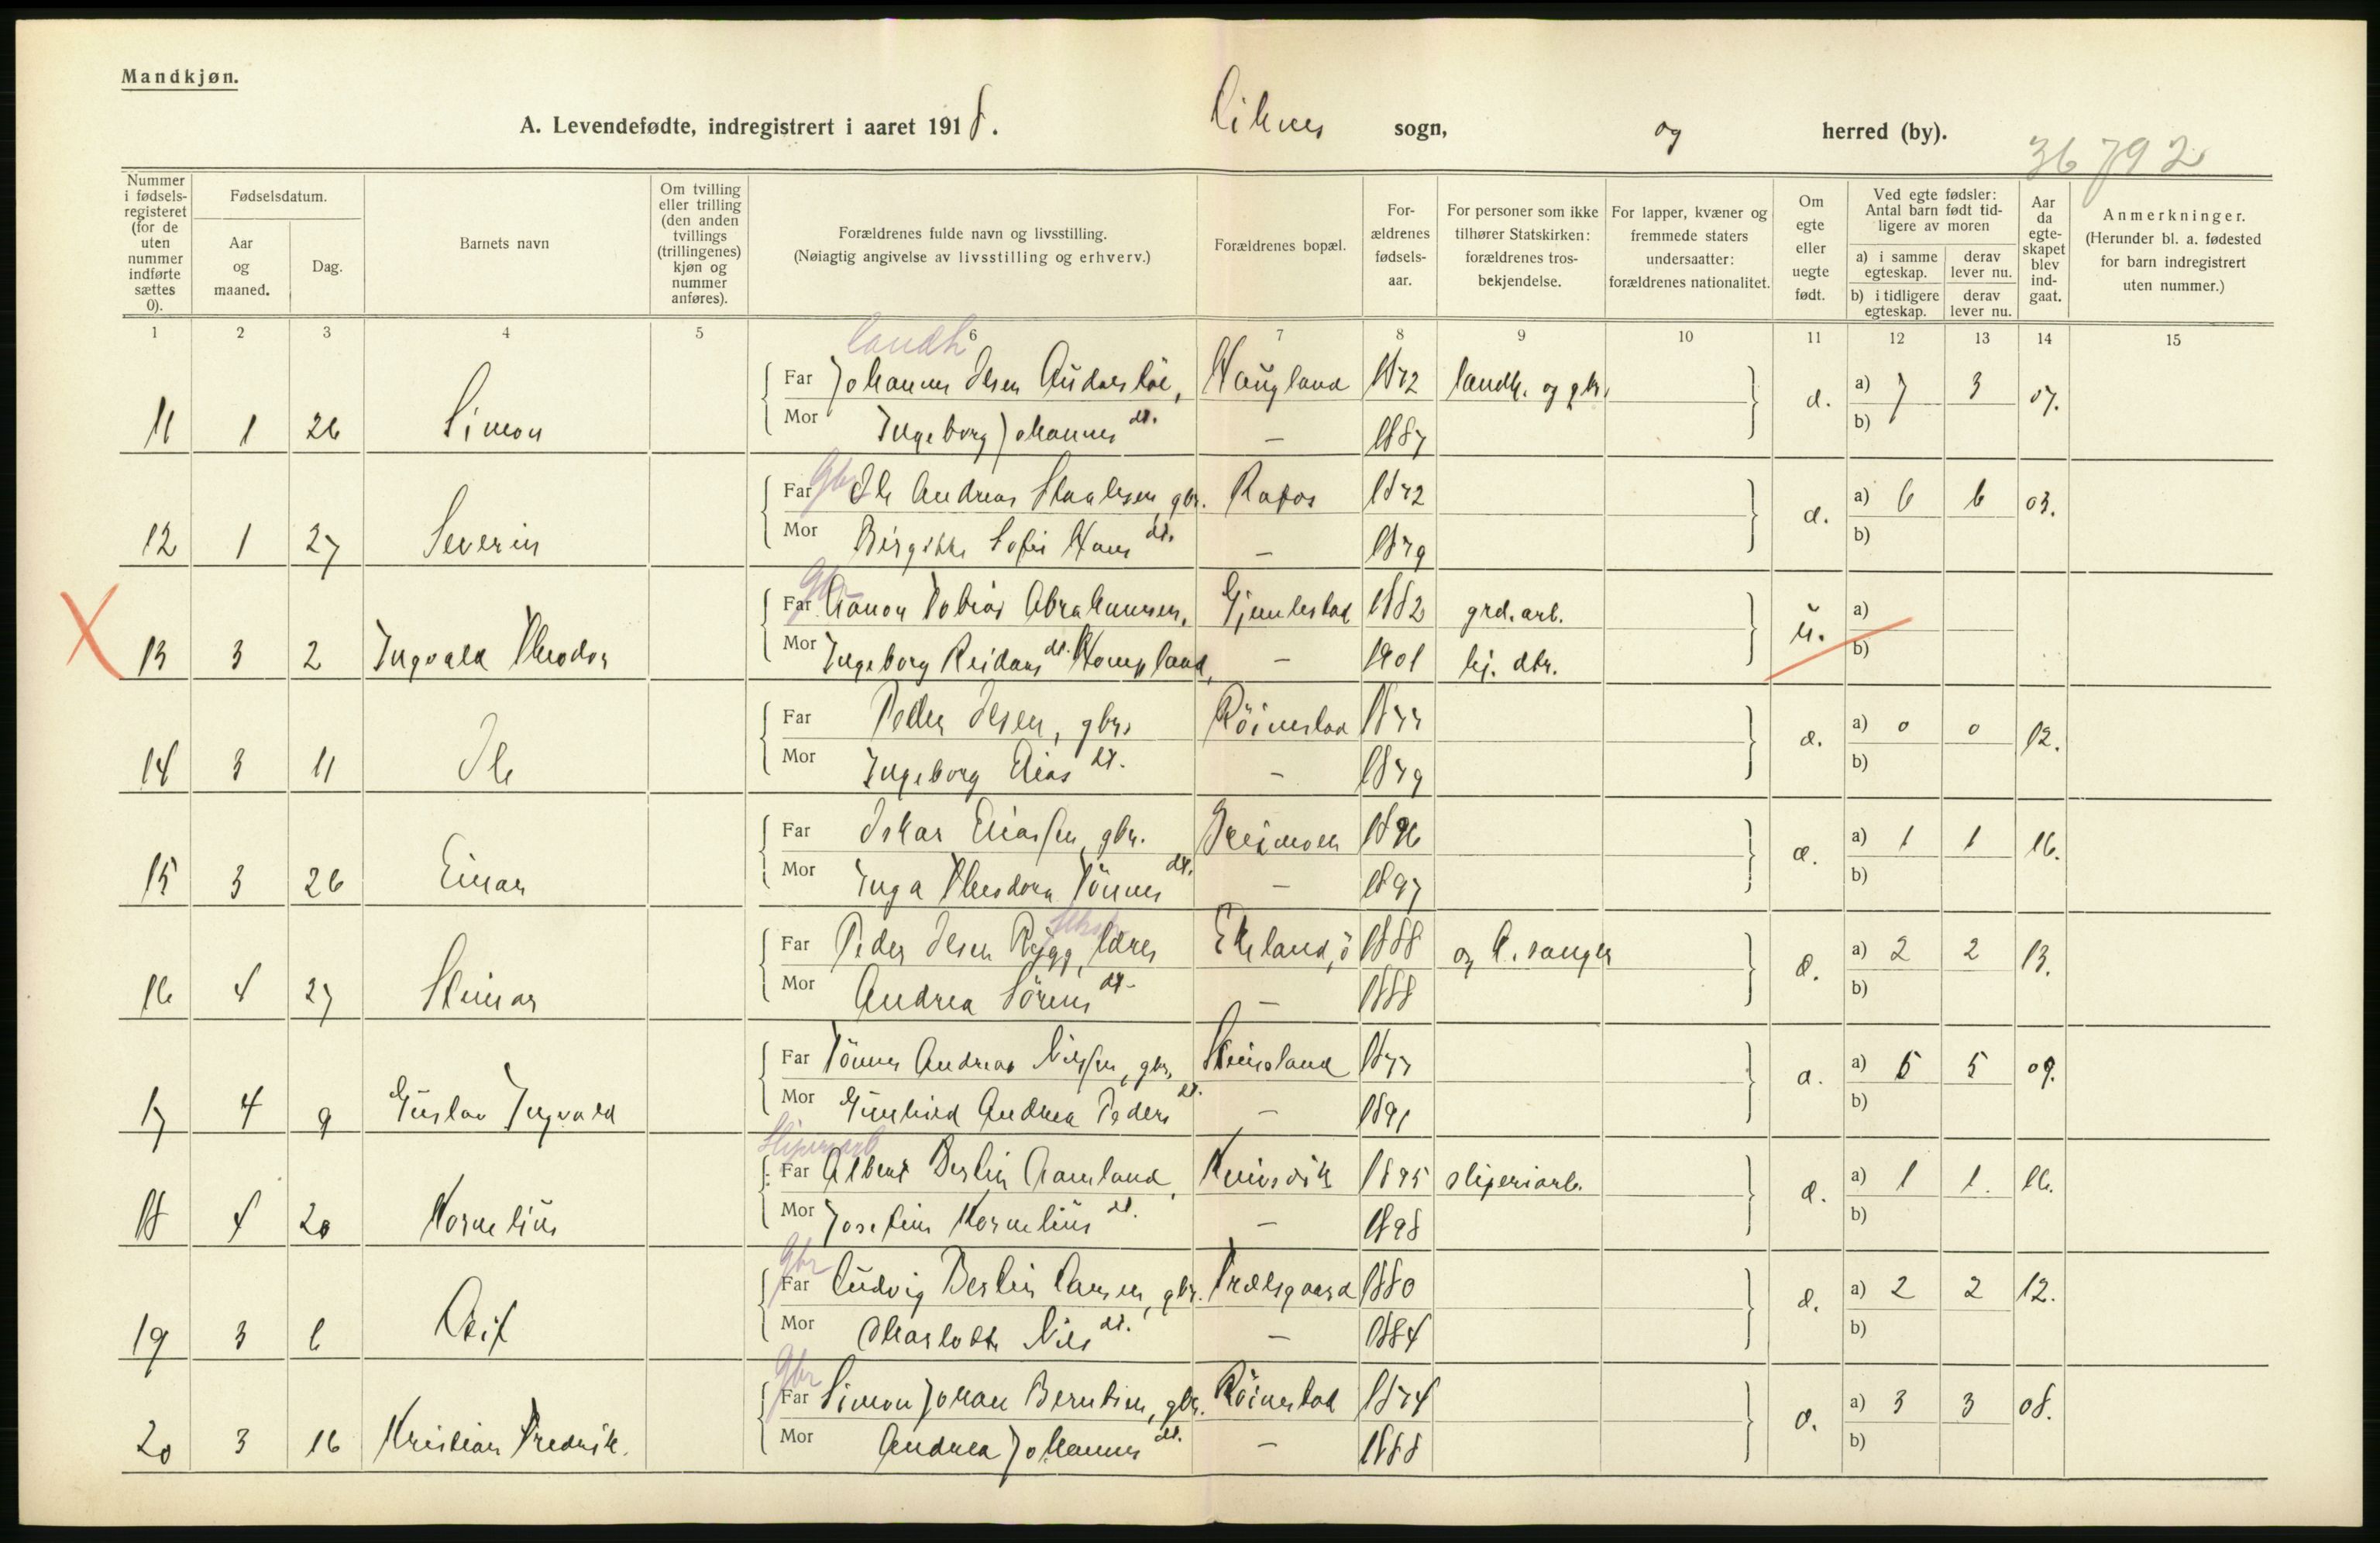 Mandkjøn.
A. Levendefødte, indregistrert i aaret 1918. Liknes sogn, og herred (by).
36792
Nummer i fødsels-registeret (for de uten nummer indførte sættes 0).
Fødselsdatum.
Aar og maaned.
Dag.
Barnets navn
Om tvilling eller trilling (den anden tvillings (trillingenes) kjøn og nummer anføres).
Forældrenes fulde navn og livsstilling.
(Nøiagtig angivelse av livsstilling og erhverv.)
Forældrenes bopæl.
For-ældrenes fødsels-aar.
For personer som ikke tilhører Statskirken: forældrenes tros-bekjendelse.
For lapper, kvæner og fremmede staters undersaatter: forældrenes nationalitet.
Om egte eller uegte født.
Ved egte fødsler: Antal barn født tid-ligere av moren
a) i samme egteskap.
derav lever nu.
b) i tidligere egteskap.
derav lever nu.
Aar da egte-skapet blev ind-gaat.
Anmerkninger.
(Herunder bl. a. fødested for barn indregistrert uten nummer.)
1 2 3 4 5 6 7 8 9 10 11 12 13 14 15
landh
Far Johannes Olsen, Haugland 1872 landh. og gbr.
11 1 26 Simon d. a) 7 3 07.
Mor Ingeborg Johannes dt. — 1887 b)
Gbr
Far Ole Andreas Staalesen, gbr. Rafos 1872
12 1 27 Severin d. a) 6 6 03.
Mor Birgitte Sofie Hans dt. — 1879 b)
Gbr
Far Aanon Tobias Abrahamsen, Gjemlestad 1882 grd.arb.
X 13 3 2 Ingvald Theodor u. a)
Mor Ingeborg Reidars dt. Kongland, — 1901 hj. dtr. b)
Far Peder Olsen, gbr. Röinestad 1877
14 3 11 Ole d. a) 0 0 12.
Mor Ingeborg Elias dt. — 1879 b)
Far Oskar Eliassen, gbr. 1896
15 3 26 Einar d. a) 1 1 16.
Mor Inga Theodora Tönnes dt. — 1897 b)
Far Peder Olsen Rygg, lærer Ekeland, ö 1888 og k. sanger
16 4 27 Steinar d. a) 2 2 13.
Mor Andrea Sörens dt. — 1888 b)
Far Tönnes Andreas Nilssen, gbr. Steinsland 1877
17 4 9 Gustav Ingvald d. a) 5 5 09.
Mor Gunhild Andrea Peders dt. — 1891 b)
Sliperiarb
Far Albert Berlin Aamland, Kvinsvik 1895 sliperiarb.
18 4 20 Kornelius d. a) 1 1. 16.
Mor Josefine Kornelius dt. — 1898 b)
Gbr
Far Ludvig Berlin Larsen, gbr. Trælsgaard 1880
19 3 6 Leif d. a) 2 2 12.
Mor Charlotte Nils dt. — 1884 b)
Gbr
Far Simon Johan Berntsen, gbr. Röinestad 1874
20 3 16 Kristian Fredrik. d. a) 3 3 08.
Mor Andrea Johannes dt. — 1888 b)